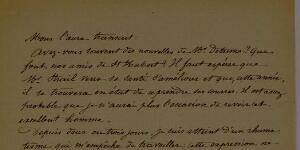 Avez-vous souvent des nouvelles de Mr. Delsems? Que
font nos amis de St Hubert? Il faut espérer que
Mr. verra se santé s'améliorer et que, cette année,
il se trouvera en état de reprendre ses courses. Il est assez
probable que je n'aurai plus l'occasion de revoir cet
excellent homme.
Depuis deux ou trois jours, je suis atteint d'un rhuma-
tisme qui m'empêche de travailler, cette expression ne